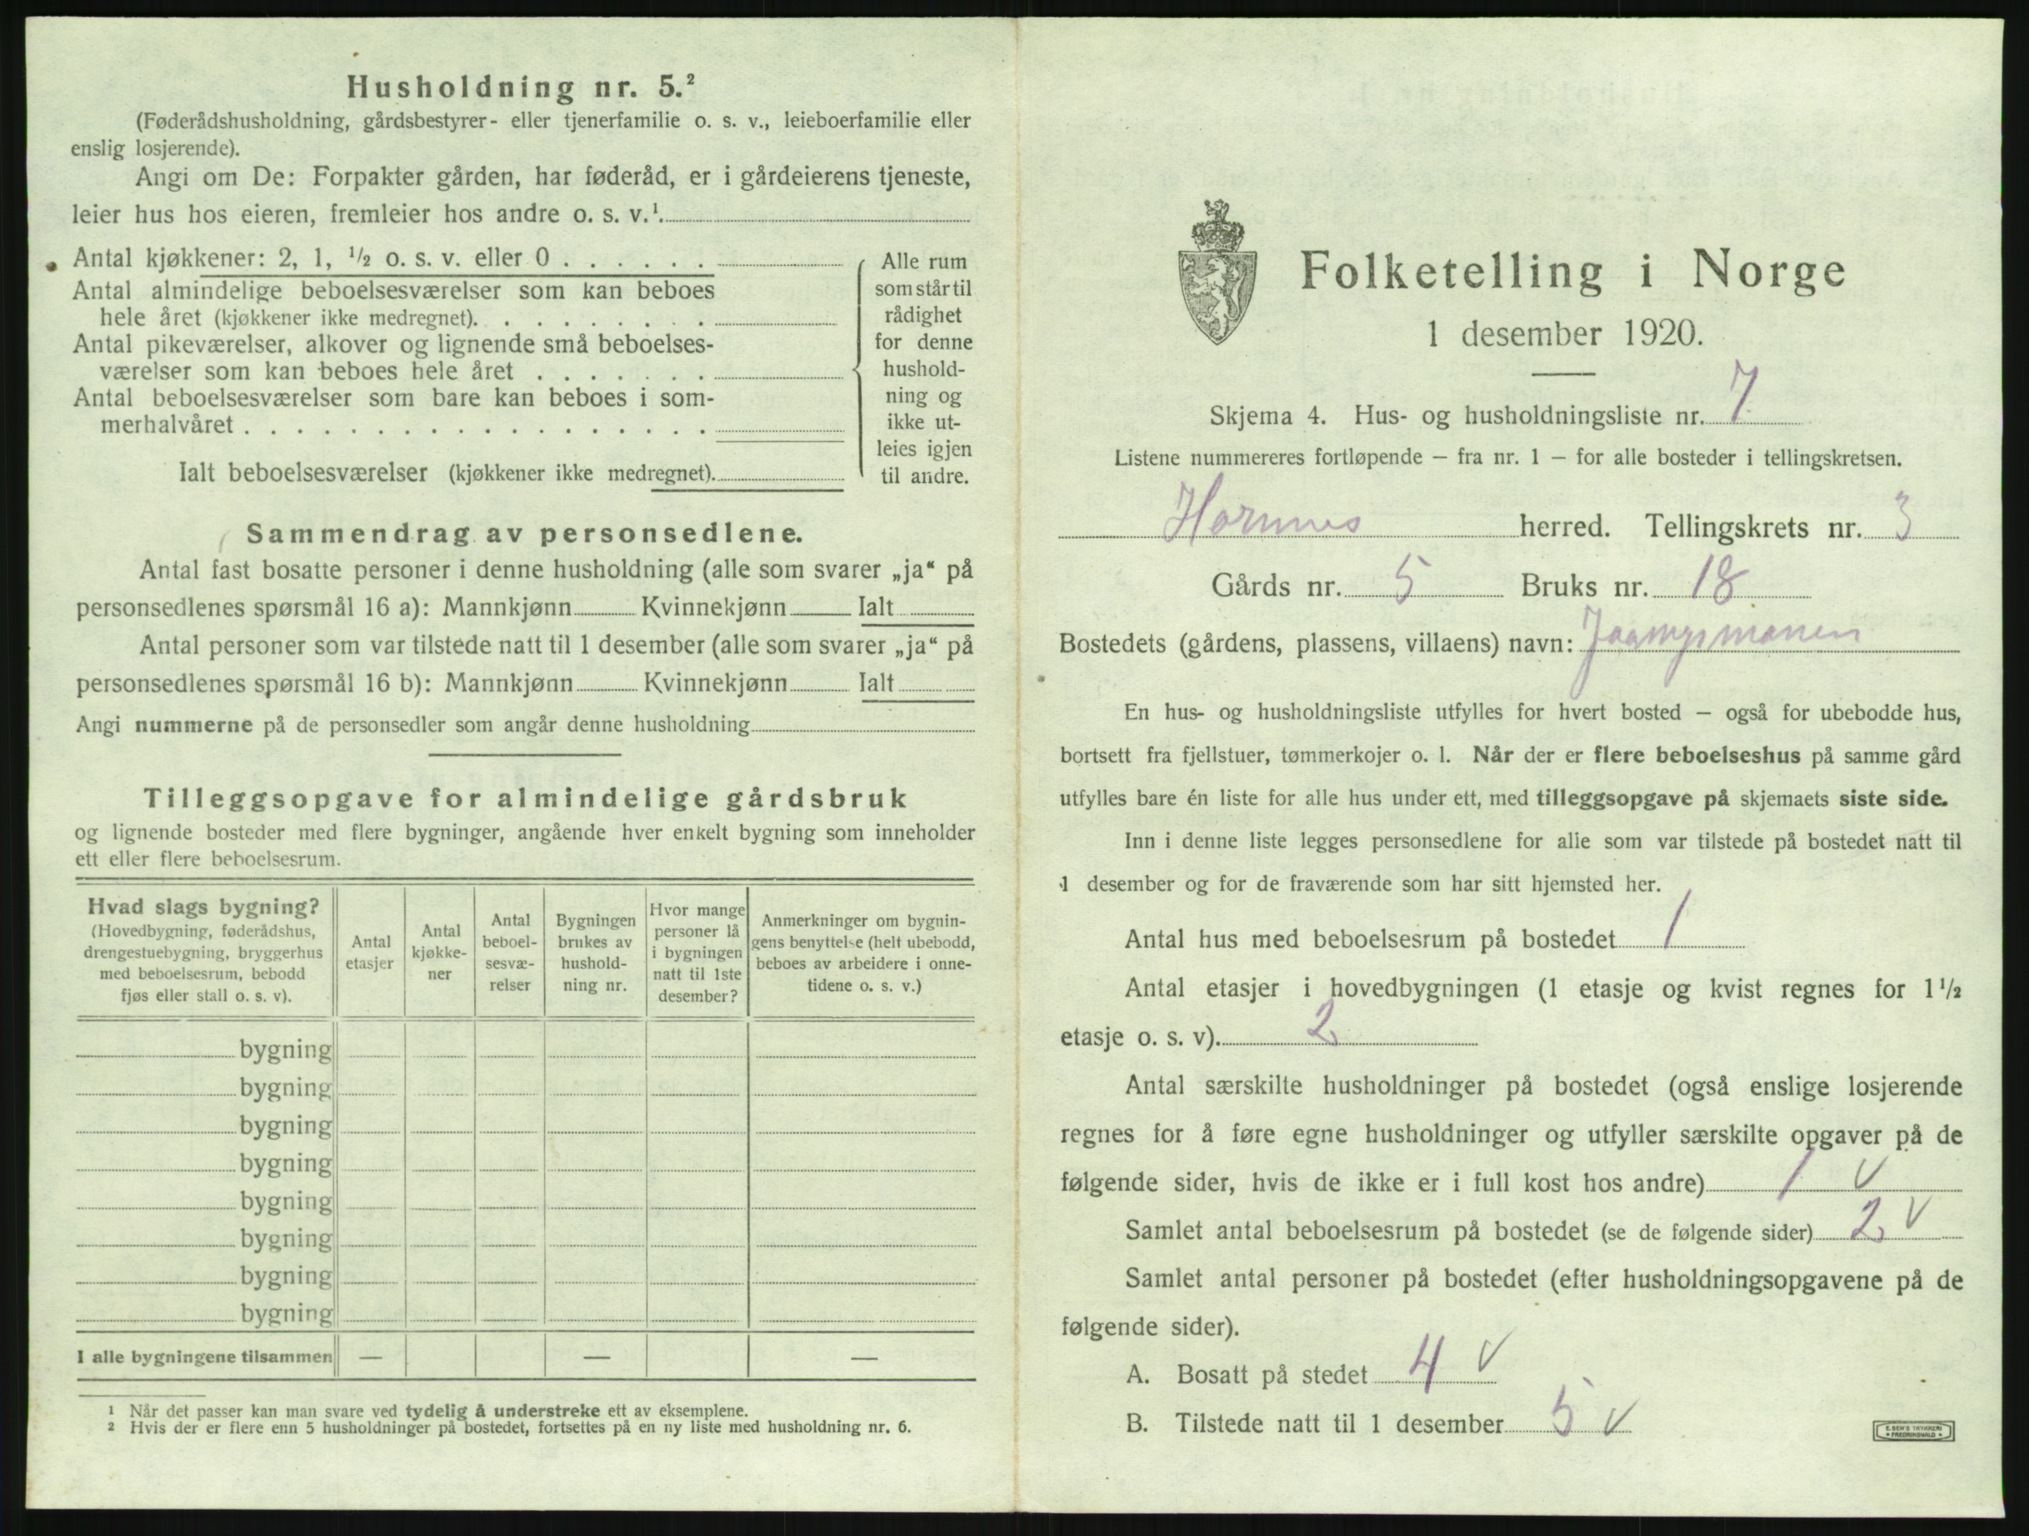 Husholdning nr. 5.²
(Føderådshusholdning, gårdsbestyrer- eller tjenerfamilie o. s. v., leieboerfamilie eller
enslig losjerende).
Angi om De: Forpakter gården, har føderåd, er i gårdeierens tjeneste,
leier hus hos eieren, fremleier hos andre o. s. v.¹
Antal kjøkkener: 2, 1, ½ o. s. v. eller 0 . . . . . .
Antal almindelige beboelsesværelser som kan beboes
hele året (kjøkkener ikke medregnet). . . . . . . . .
Antal pikeværelser, alkover og lignende små beboelses-
værelser som kan beboes hele året . . . . . . .
Antal beboelsesværelser som bare kan beboes i som-
merhalvåret . . . . . . . . . . . . . . . . . .
Ialt beboelsesværelser (kjøkkener ikke medregnet).
Alle rum
som står til
rådighet
for denne
hushold-
ning og
ikke ut-
leies igjen
til andre.
Sammendrag av personsedlene.
Antal fast bosatte personer i denne husholdning (alle som svarer „ja“ på
personsedlenes spørsmål 16 a): Mannkjønn Kvinnekjønn Ialt
Antal personer som var tilstede natt til 1 desember (alle som svarer „ja“ på
personsedlenes spørsmål 16 b): Mannkjønn Kvinnekjønn Ialt
Angi nummerne på de personsedler som angår denne husholdning
Tilleggsopgave for almindelige gårdsbruk
og lignende bosteder med flere bygninger, angående hver enkelt bygning som inneholder
ett eller flere beboelsesrum.
Hvad slags bygning?
(Hovedbygning, føderådshus,
drengestuebygning, bryggerhus
med beboelsesrum, bebodd
fjøs eller stall o. s. v).
Antal
etasjer
Antal
kjøkke-
ner
Antal
beboel-
sesvæ-
relser
Bygningen
brukes av
hushold-
ning nr.
Hvor mange
personer lå
i bygningen
natt til 1ste
desember?
Anmerkninger om bygnin-
gens benyttelse (helt ubebodd,
beboes av arbeidere i onne-
tidene o. s. v.)
bygning
bygning
bygning
bygning
bygning
bygning
bygning
bygning
I alle bygningene tilsammen — — —
¹ Når det passer kan man svare ved tydelig å understreke ett av eksemplene.
² Hvis der er flere enn 5 husholdninger på bostedet, fortsettes på en ny liste med husholdning nr. 6.
Folketelling i Norge
1 desember 1920.
Skjema 4. Hus- og husholdningsliste nr. 7
Listene nummereres fortløpende – fra nr. 1 – for alle bosteder i tellingskretsen.
Hornnes herred. Tellingskrets nr. 3
Gårds nr. 5 Bruks nr. 18
Bostedets (gårdens, plassens, villaens) navn:
En hus- og husholdningsliste utfylles for hvert bosted – også for ubebodde hus,
bortsett fra fjellstuer, tømmerkojer o. l. Når der er flere beboelseshus på samme gård
utfylles bare én liste for alle hus under ett, med tilleggsopgave på skjemaets siste side.
Inn i denne liste legges personsedlene for alle som var tilstede på bostedet natt til
1 desember og for de fraværende som har sitt hjemsted her.
Antal hus med beboelsesrum på bostedet 1
Antal etasjer i hovedbygningen (1 etasje og kvist regnes for 1 ½
etasje o. s. v). 2
Antal særskilte husholdninger på bostedet (også enslige losjerende
regnes for å føre egne husholdninger og utfyller særskilte opgaver på de
følgende sider, hvis de ikke er i full kost hos andre) 1 v
Samlet antal beboelsesrum på bostedet (se de følgende sider) 2 v
Samlet antal personer på bostedet (efter husholdningsopgavene på de
følgende sider).
A. Bosatt på stedet 4 v
B. Tilstede natt til 1 desember 5 v